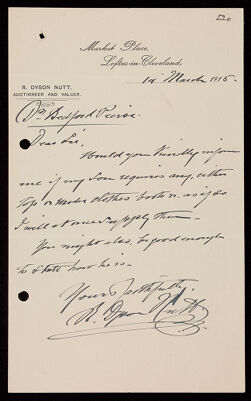 520
Market Place,
Loftus-in-Cleveland,
1st March 1915.
R. DYSON NUTT,
AUCTIONEER AND VALUER.
Dr Bedford Pierce.
Dear Sir,
Would you kindly inform
me if my Son requires any, either
top or under clothes boots &c. if so
I will at once supply them—
You might also be good enough
to state how he is—
Yours faithfully
R. Dyson Nutt